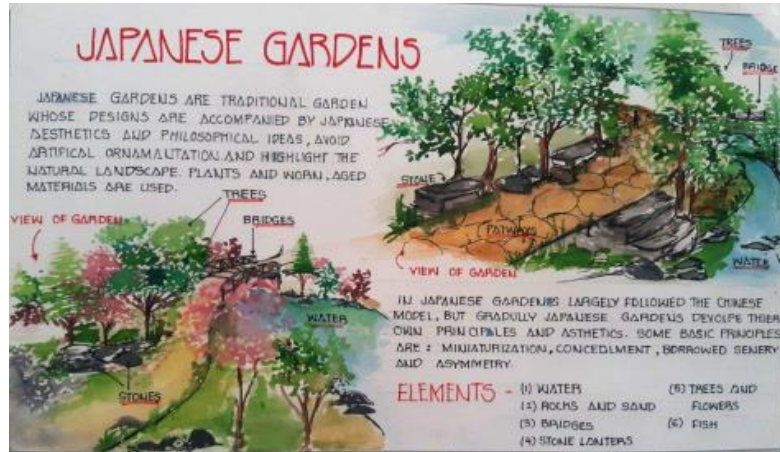 JAPANESE GARDENS
JAPANESE GARDENS ARE TRADITIONAL GARDEN
WHOSE DESIGNS ARE ACCOMPANIED BY JAPANESE
AESTHETICS AND PHILOSOPHICAL IDEAS, AVOID
ARTIFICAL ORNAMANTATION AND HIGHLIGHT THE
NATURAL LANDSCAPE. PLANTS AND WORN, AGED
MATERIALS ARE USED.
TREES
VIEW OF GARDEN
BRIDGES
WATER
STONES
TREES
BRIDGE
STONE
PATWAYS
VIEW OF GARDEN
WATER
IN JAPANESE GARDENS LARGELY FOLLOWED THE CHINESE
MODEL, BUT GRADULLY JAPANESE GARDENS DEVOLPE THIER
OWN PRINCIPALES AND ASTHETICS. SOME BASIC PRINCIPLES
ARE : MINIATURIZATION, CONCEDLMENT, BORROWED SENERY
AND ASYMMETRY.
ELEMENTS - (1) WATER
(2) ROCKS AND SAND
(3) BRIDGES
(4) STONE LANTERS
(5) TREES AND
FLOWERS
(6) FISH